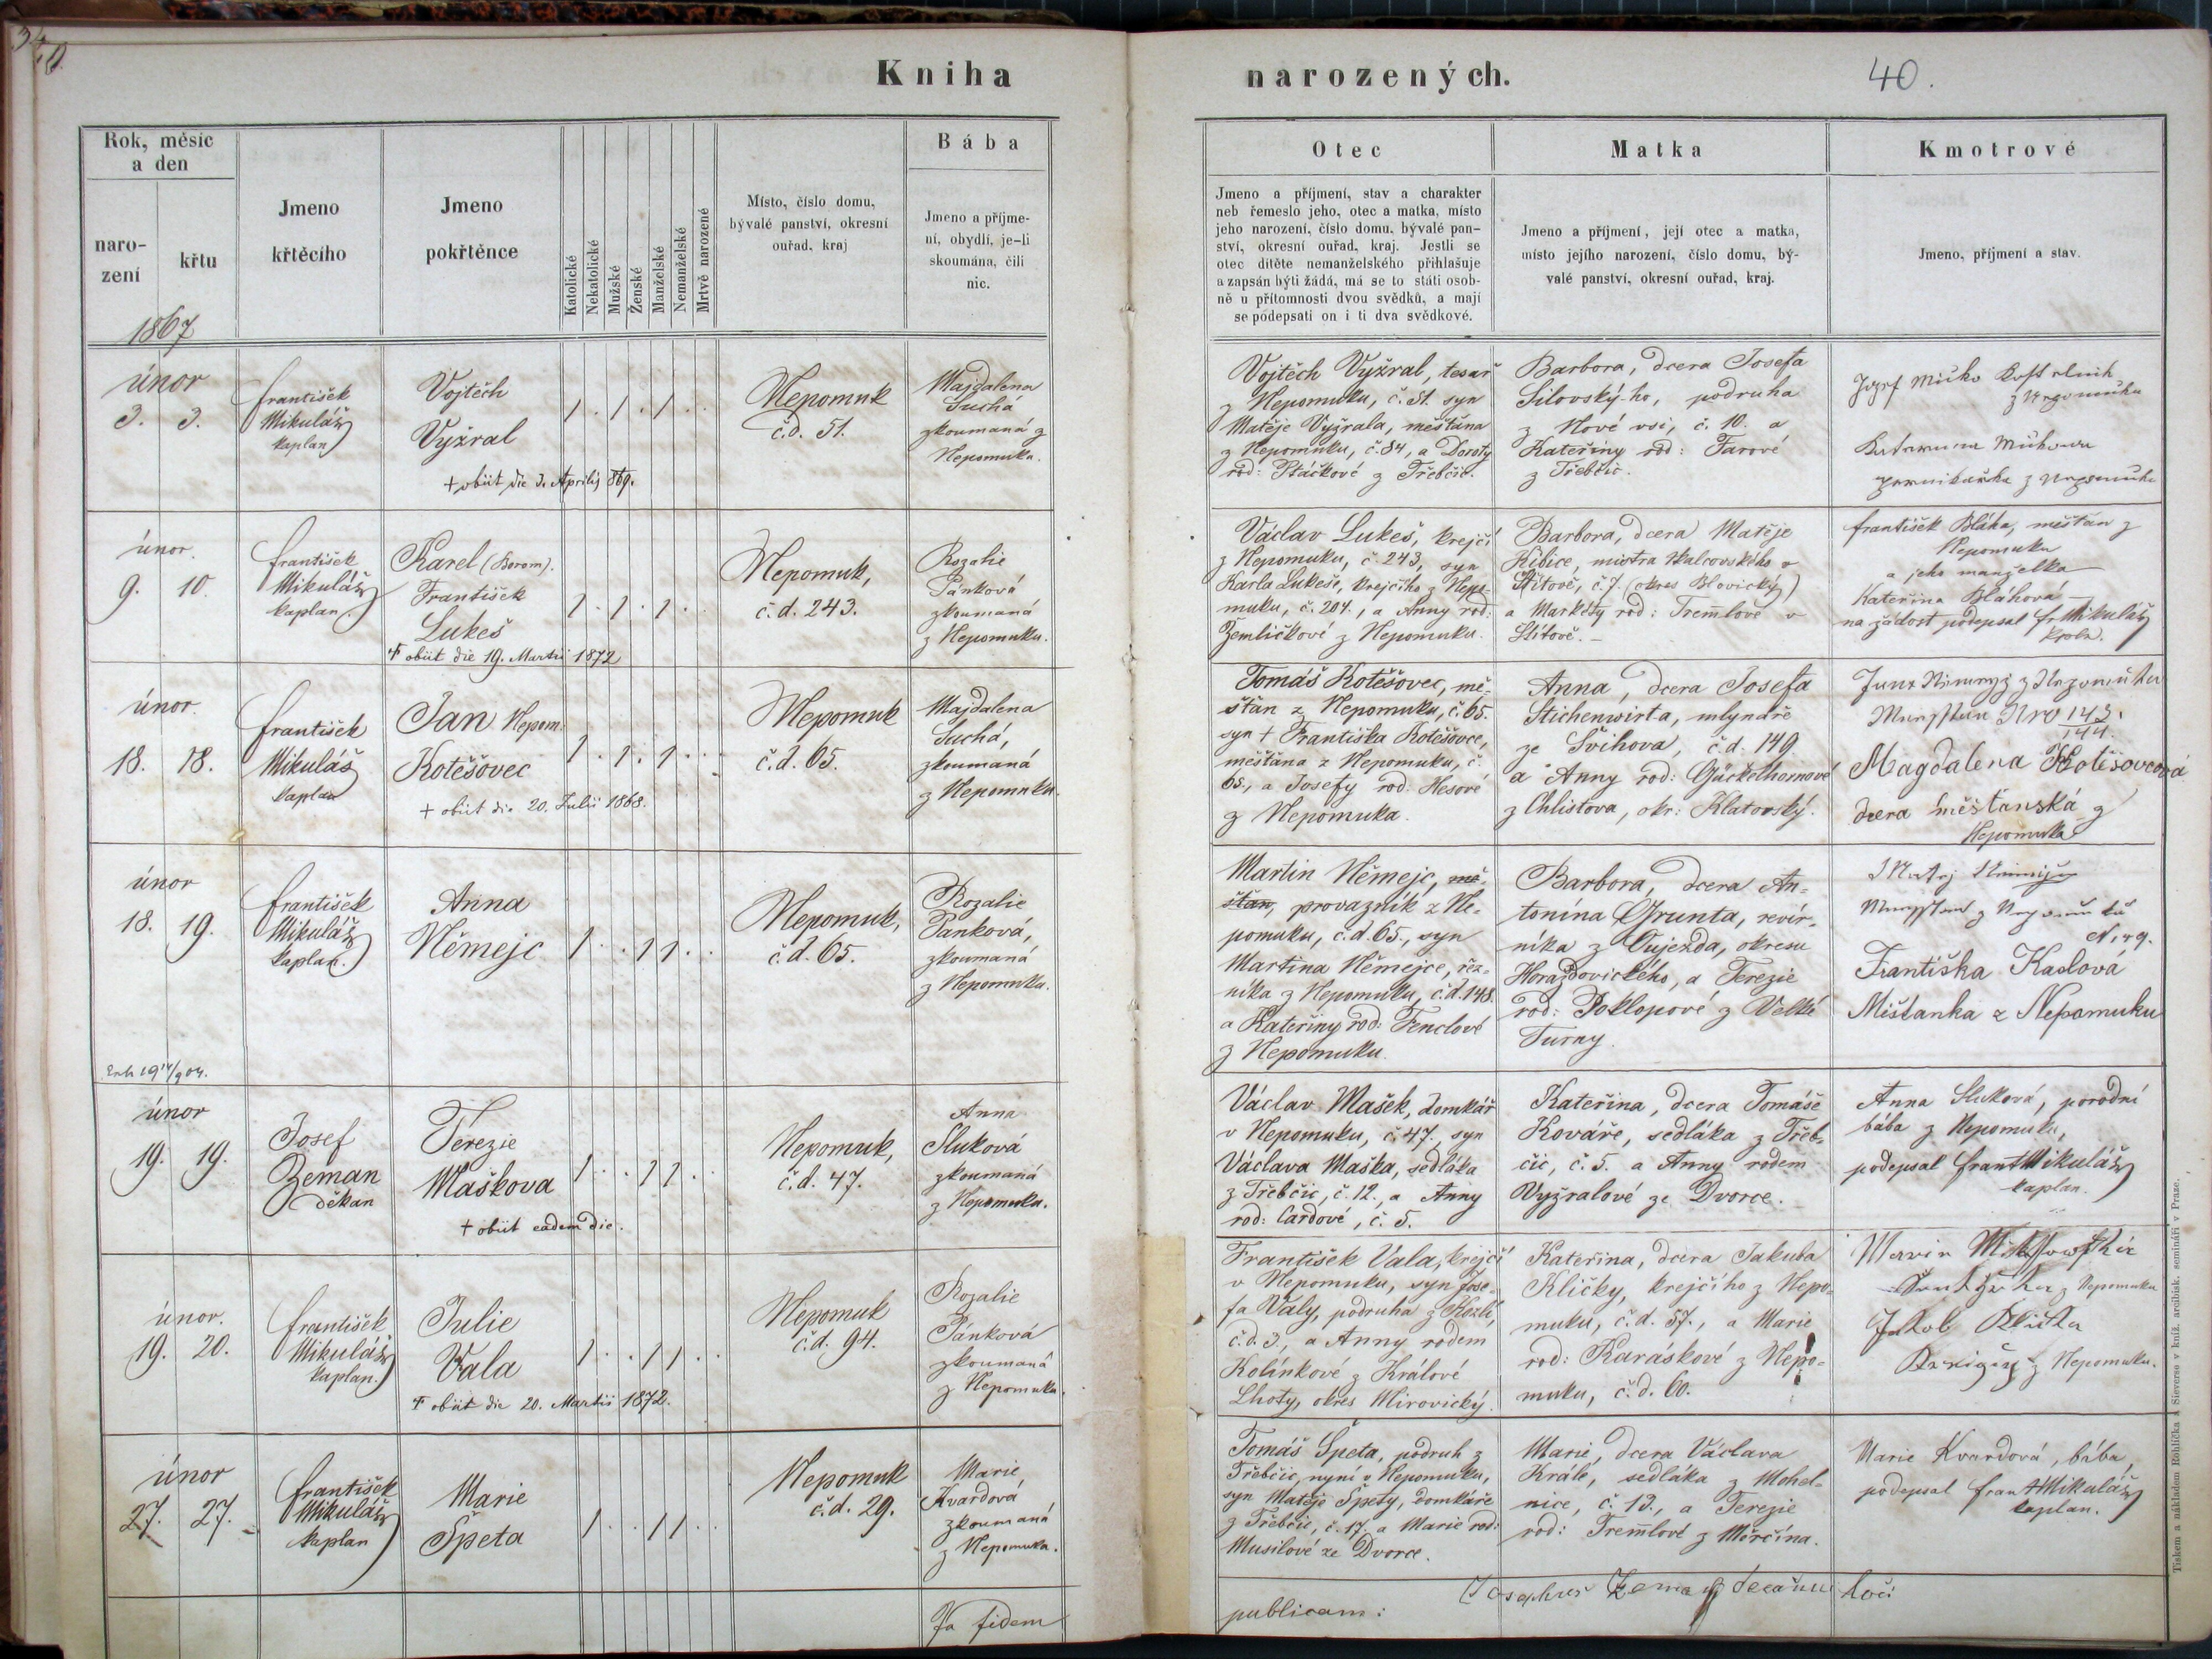 Kniha
narozených.
40.
Rok, měsíc
a den
naro-
zení
křtu
1867
Jmeno
křtěcího
Jmeno
pokřtěnce
Katolické
Nekatolické
Mužské
Ženské
Manželské
Nemanželské
Mrtvě narozené
Místo, číslo domu,
bývalé panství, okresní
ouřad, kraj
Bába
Jmeno a příjme-
ní, obydlí, je-li
skoumána, čili
nic.
Otec
Jmeno a příjmení, stav a charakter
neb řemeslo jeho, otec a matka, místo
jeho narození, číslo domu, bývalé pan-
ství, okresní ouřad, kraj. Jestli se
otec dítěte nemanželského přihlašuje
a zapsán býti žádá, má se to státi osob-
ně u přítomnosti dvou svědků, a mají
se podepsati on i ti dva svědkové.
Matka
Jmeno a příjmení, její otec a matka,
místo jejího narození, číslo domu, bý-
valé panství, okresní ouřad, kraj.
Kmotrové
Jmeno, příjmení a stav.
únor
3. 3.
František
Mikuláš
kaplan
Vojtěch
Vyžral
+ obiit die 3. Aprilis 869.
1 . 1 . 1 . .
Nepomuk
č.d. 51.
Majdalena
Suchá
zkoumaná z
Nepomuka.
Vojtěch Vyžral, tesař
z Nepomuku, č. 51. syn
Matěje Vyžrala, mešťana
z Nepomuku, č. 84, a Doroty
rod: Ptáčkové z Třebčic.
Barbora, dcera Josefa
Silovský-ho, podruha
z Nové vsi, č. 10. a
Kateřiny rod: Farové
z Třebčic.
únor.
9. 10.
František
Mikuláš
kaplan
Karel (Borom).
František
Lukeš
+ obiit die 19. Martii 1872
1 . 1 . 1 . .
Nepomuk,
č.d. 243.
Rozalie
Pánková
zkoumaná
z Nepomuku.
Václav Lukeš, krejčí
z Nepomuku, č. 243, syn
Karla Lukeše, krejčího z Nepo-
muku, č. 204., a Anny rod:
Žemličkové z Nepomuku.
Barbora, dcera Matěje
Kibice, mistra
Štítově, č. 7. (okres Blovický)
a Markéty rod: Tremlové v
Štítově. -
František Bláha, mešťan z
Nepomuku
a jeho manželka
Kateřina Bláhová
na žádost podepsal fr. Mikuláš
kapla.
únor.
18. 18.
František
Mikuláš
kaplan
Jan Nepom.
Kotěšovec
+ obiit die 20. Julii 1868.
1 . 1 . 1 . .
Nepomuk
č.d. 65.
Majdalena
Suchá,
zkoumaná
z Nepomuku.
Tomáš Kotěšovec, mě-
šťan z Nepomuku, č. 65.
syn + Františka Kotěšovce,
měšťana z Nepomuku, č.
65., a Josefy rod. Hesové
z Nepomuka.
Anna, dcera Josefa
Stichenwirta, mlynáře
ze Švihova, č.d. 149.
a Anny rod:
z Chlistova, okr: Klatovský.
Nro 143.
144.
Magdalena Kotěšovcová
dcera měšťanská z
Nepomuka
únor
18. 19.
František
Mikuláš
kaplan.
Anna
Němejc
1 . . 1 1 . .
Nepomuk,
č.d. 65.
Rozalie
Panková,
zkoumaná
z Nepomuku.
Martin Němejc, mě-
šťan, provazník z Ne-
pomuku, č.d. 65., syn
Martina Němejce, řez-
níka z Nepomuku, č.d. 148.
a Kateřiny rod: Fenclové
z Nepomuku.
Barbora, dcera An-
tonína Grunta, revír-
níka z Oujezda, okresu
Horažďovického, a Terezie
rod: Poklopové z Velké
Turny.
Františka Kaslová
Mišťanka z Nepomuku
únor
19. 19.
Josef
Zeman
děkan
Terezie
Maškova
+ obiit eadem die.
1 . . 1 1 . .
Nepomuk,
č.d. 47.
Anna
Sluková
zkoumaná
z Nepomuka.
Václav Mašek, domkář
v Nepomuku, č. 47., syn
Václava Maška, sedláka
z Třebčic, č. 12., a Anny
rod: Cardové, č. 5.
Kateřina, dcera Tomáše
Kováře, sedláka z Třeb-
čic, č. 5. a Anny rodem
Vyžralové ze Dvorce.
Anna Sluková, porodní
bába z Nepomuku,
podepsal Frant Mikuláš
kaplan.
únor.
19. 20.
František
Mikuláš
kaplan.
Julie
Vala
+ obiit die 20. Martii 1872.
1 . . 1 1 . .
Nepomuk
č.d. 94.
Rozalie
Pánková
zkoumaná
z Nepomuku.
František Vala, krejčí
v Nepomuku, syn Jose-
fa Valy, podruha z Kozlí,
č.d. 3., a Anny rodem
Kolínkové z Králové
Lhoty, okres Mirovický.
Kateřina, dcera Jakuba
Kličky, krejčího z Nepo-
muku, č.d. 57., a Marie
rod: Karáskové z Nepo-
muku, č.d. 60.
z Nepomuku
Jakob Klička
z Nepomuku.
únor
27. 27.
František
Mikuláš
kaplan
Marie
Špeta
1 . . 1 1 . .
Nepomuk
č.d. 29.
Marie
Kvardová
zkoumaná
z Nepomuka.
Tomáš Špeta, podruh z
Třebčic, nyní v Nepomuku,
syn Matěje Špety, domkáře
z Třebčic, č. 17. a Marie rod:
Musilové ze Dvorce.
Marie, dcera Václava
Krále, sedláka z Mohel-
nice, č. 13., a Terezie
rod: Tremlové z Měrčína.
Marie Kvardová, bába,
podepsal Frant Mikuláš
kaplan.
fidem
publicam:
Josephus Zeman
Tiskem a nákladem Rohlíčka & Sievers v kníž. arcibisk. semináři v Praze.